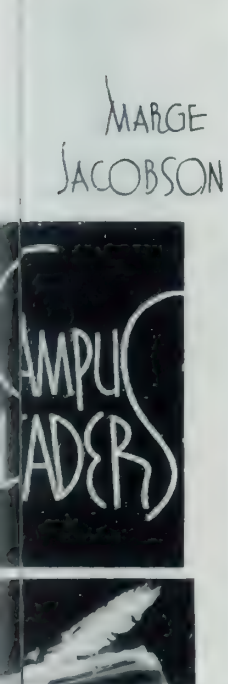 MARGE
JACOBSON
CAMPUS
EADERS